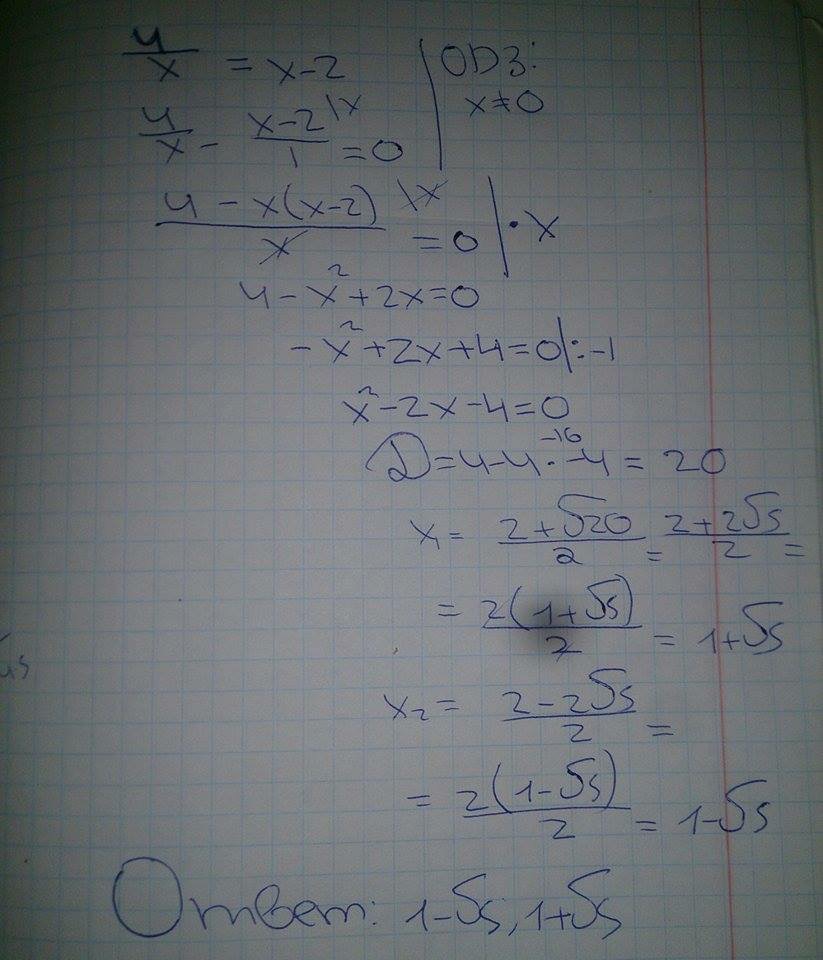 4/x = x-2 | ОДЗ:
x≠0
4/x - (x-2)/1 \x = 0
(4 - x(x-2))/x \x = 0 | · x
4 - x² + 2x = 0
-x² + 2x + 4 = 0 | : -1
x² - 2x - 4 = 0
D = 4 - 4 · -4 = 20
-16
x₁ = (2+√20)/2 = (2+2√5)/2 =
= 2(1+√5)/2 = 1+√5
x₂ = (2-2√5)/2 =
= 2(1-√5)/2 = 1-√5
Ответ: 1-√5, 1+√5